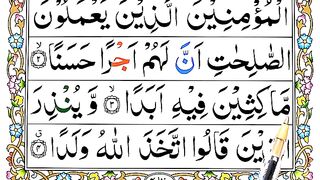 الْمُؤْمِنِيْنَ الَّذِيْنَ يَعْمَلُوْنَ
الصّٰلِحٰتِ اَنَّ لَهُمْ اَجْرًا حَسَنًا ۙ۲
مَّاكِثِيْنَ فِيْهِ اَبَدًا ۙ۳ وَّ يُنْذِرَ
الَّذِيْنَ قَالُوا اتَّخَذَ اللّٰهُ وَلَدًا ۗ۴